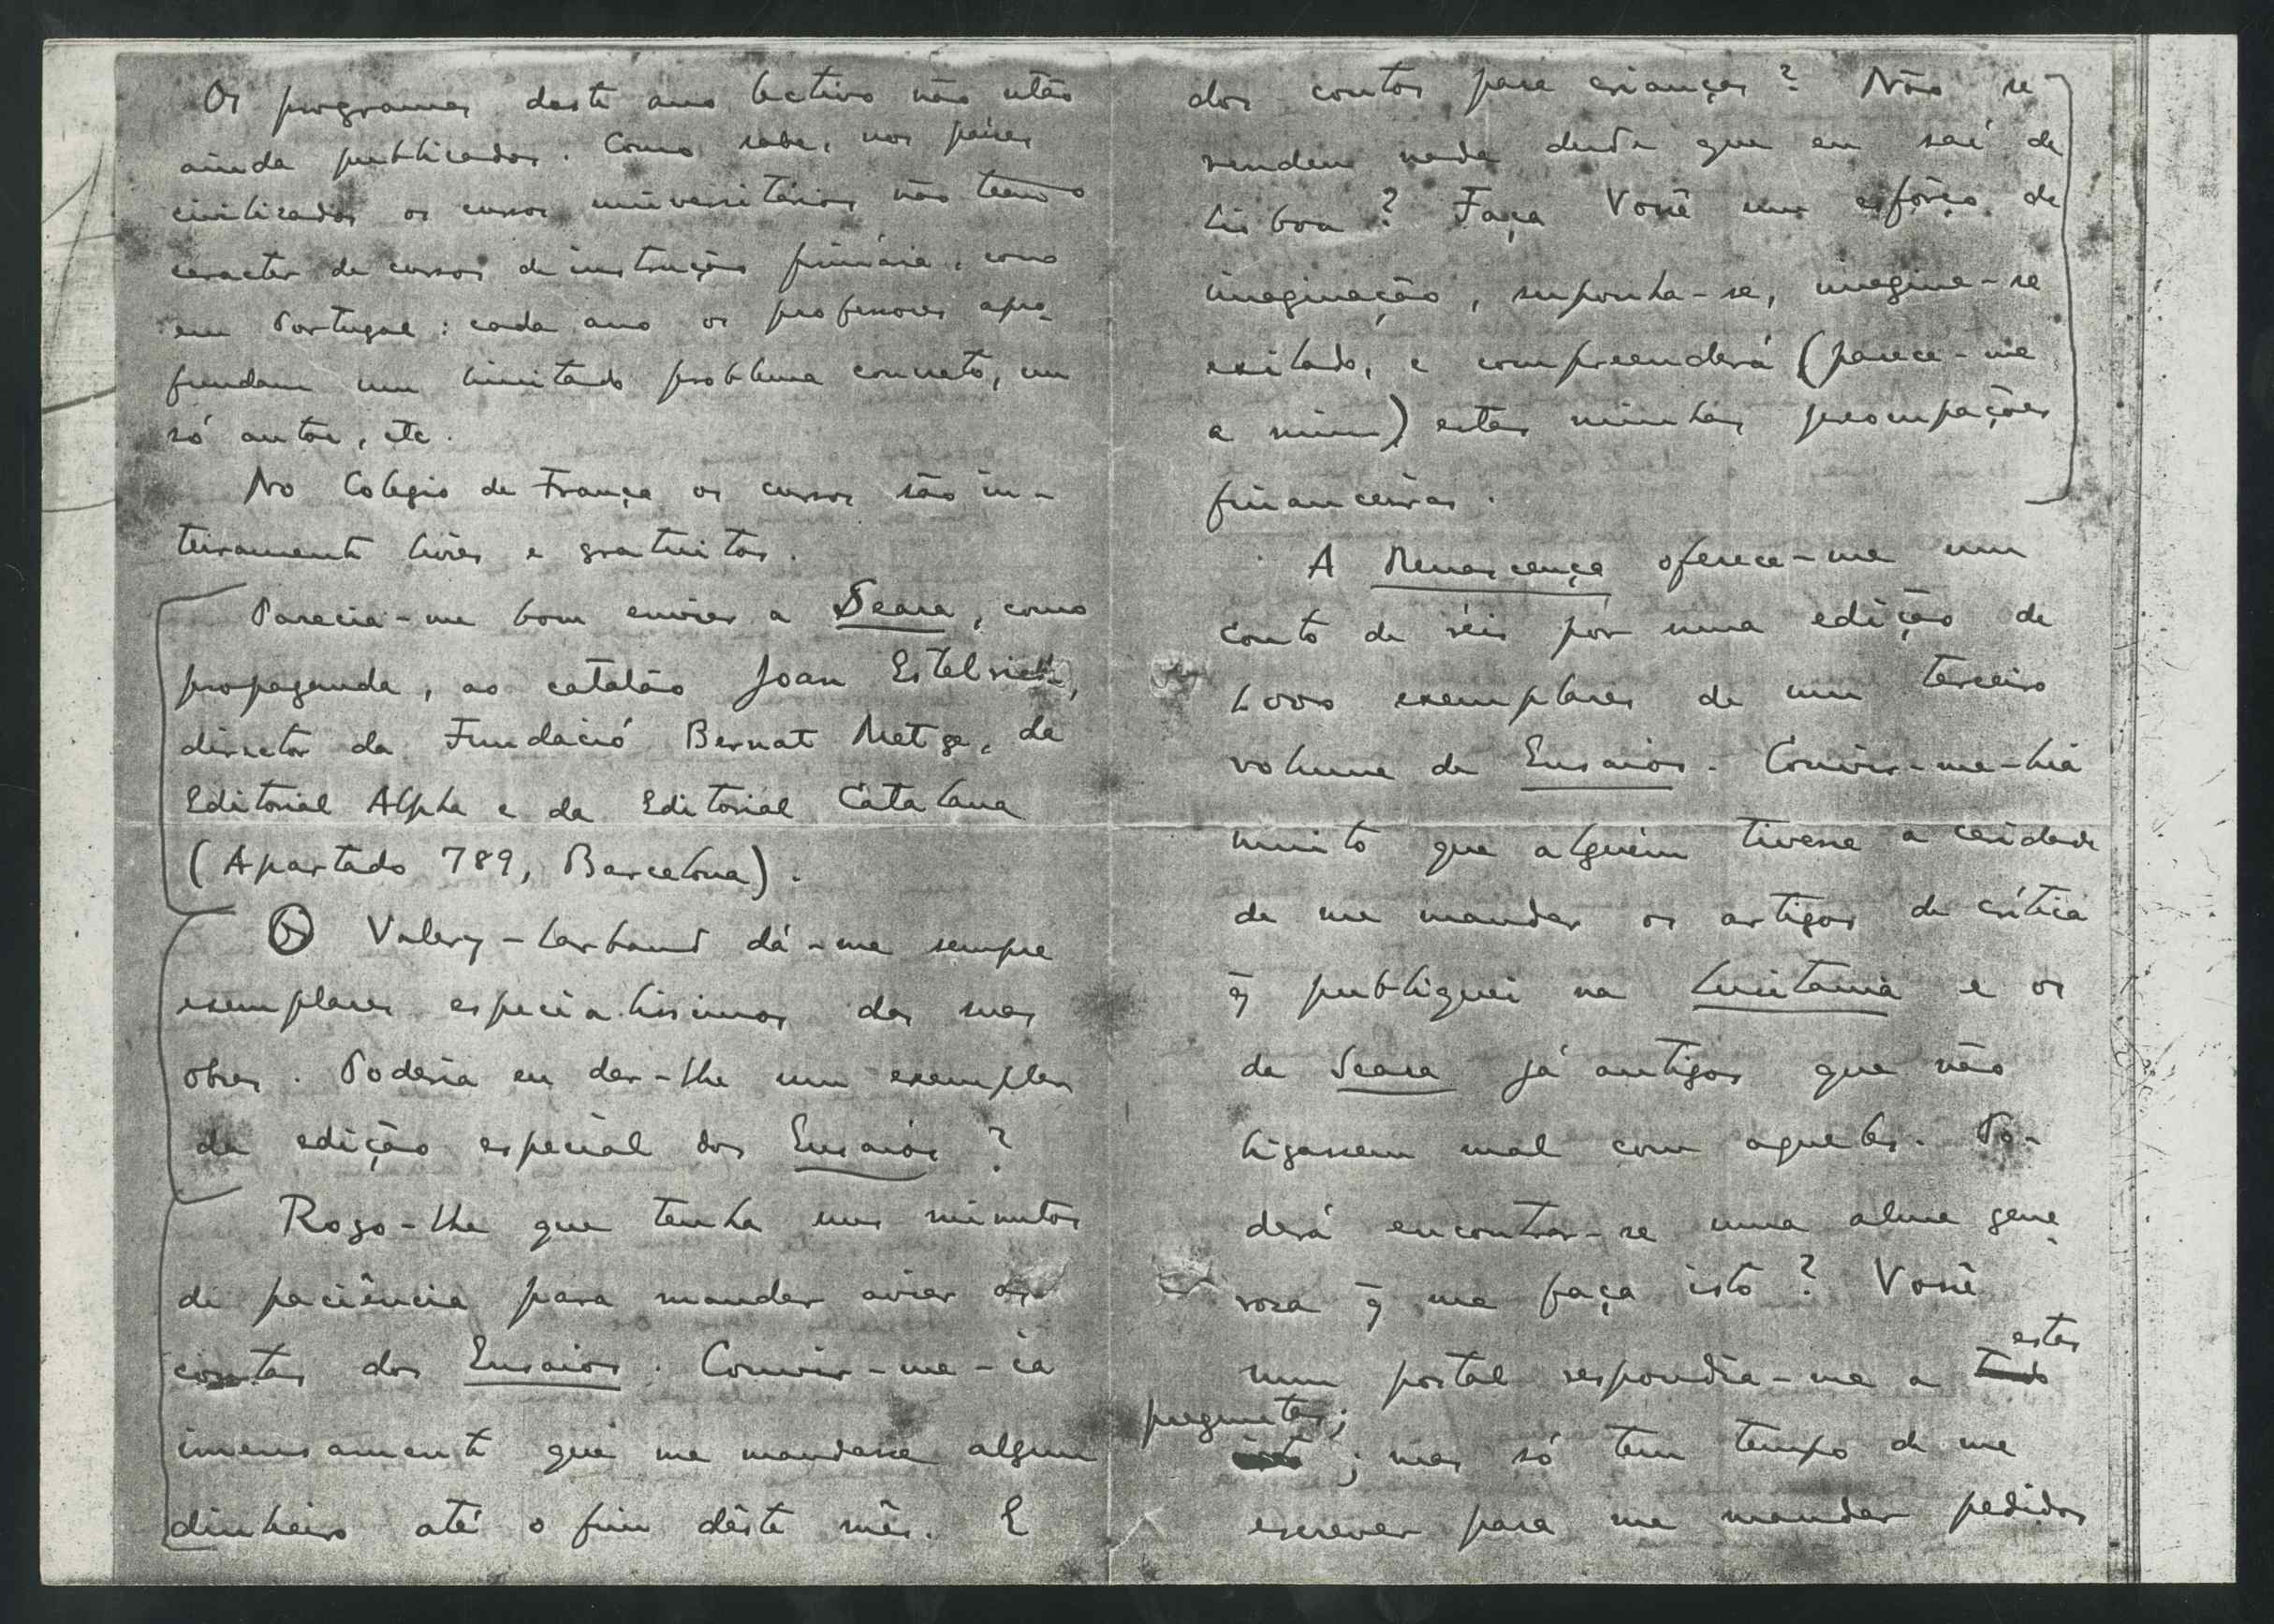 Os programas deste ano lectivo não estão
ainda publicados. Como sabe, nos países
civilizados os cursos universitários não teem o
caracter de cursos de instrução primária, como
em Portugal: cada ano os professores apro-
fundam um limitado problema concreto, um
só autor, etc.
No Colegio de França os cursos são in-
teiramente livres e gratuitos.
Parecia-me bom enviar a Seara, como
propaganda, ao catalão Joan Estelrich,
director da Fundació Bernat Metge, da
Editorial Alpha e da Editorial Catalana
(Apartado 789, Barcelona).
Valery-Larbaud dá-me sempre
exemplares especialissimos das suas
obras. Poderia eu dar-lhe um exemplar
da edição especial dos Ensaios?
Rogo-lhe que tenha uns minutos
de paciência para mandar aviar as
contas dos Ensaios. Convir-me-ia
imensamente que me mandasse algum
dinheiro até o fim dêste mês. E
dos contos para crianças? Não se
vendeu nada desde que eu saí de
Lisboa? Faça Você um esfôrço de
imaginação, suponha-se, imagine-se
exilado, e compreenderá (parece-me
a mim) estas minhas preocupações
financeiras.
A Renascença oferece-me um
conto de réis por uma edição de
2000 exemplares de um terceiro
volume de Ensaios. Convir-me-hia
muito que alguém tivesse a caridade
de me mandar os artigos de crítica
q̃ publiquei na Lusitania e os
da Seara já antigos que não
ligassem mal com aqueles. Po-
derá encontrar-se uma alma gene-
rosa q̃ me faça isto? Você
estas
num postal respondia-me a tudo
preguntas;
isto; mas só tem tempo de me
escrever para me mandar pedidos